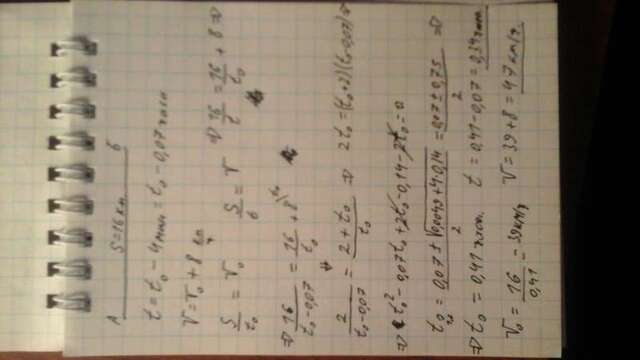 A S=16 км Б
t = t₀ - 4 мин = t₀ - 0,07 часа
V = V₀ + 8 км/ч
S/t₀ = V₀ S/t = V ⇒ 16/t = 16/t₀ + 8 ⇒
⇒ 16/(t₀-0,07) = 16/t₀ + 8
2/(t₀-0,07) = (2+t₀)/t₀ ⇒ 2t₀ = (t₀+2)(t₀-0,07) ⇒
⇒ t₀² - 0,07t₀ + 2t₀ - 0,14 - 2t₀ = 0
t₀ 1,2 = (0,07 ± √(0,0049+4·0,14))/2 = (0,07 ± 0,75)/2 ⇒
⇒ t₀ = 0,41 часа. t = 0,41 - 0,07 = 0,34 часа.
V₀ = 16/0,41 = 39 км/ч V = 39 + 8 = 47 км/ч.